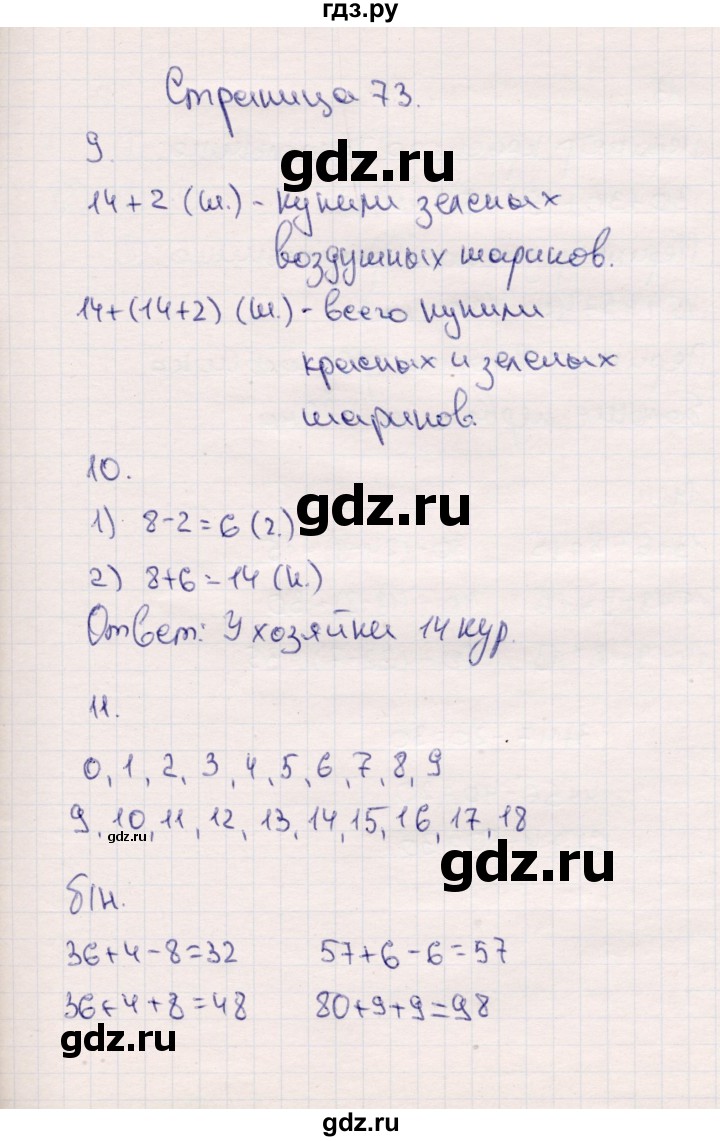 гдз.ру
Страница 73.
9.
gdz.ru
14+2 (ш.) - купили зеленых
воздушных шариков.
14+(14+2) (ш.) - всего купили
красных и зеленых
шариков.
10.
gdz.ru
1) 8-2=6 (г.)
2) 8+6=14 (к.)
Ответ: У хозяйки 14 кур.
11.
0, 1, 2, 3, 4, 5, 6, 7, 8, 9
9, 10, 11, 12, 13, 14, 15, 16, 17, 18
gdz.ru
gdz.ru
б/н.
36+4-8=32 57+6-6=57
36+4+8=48 80+9+9=98
gdz.ru
gdz.ru